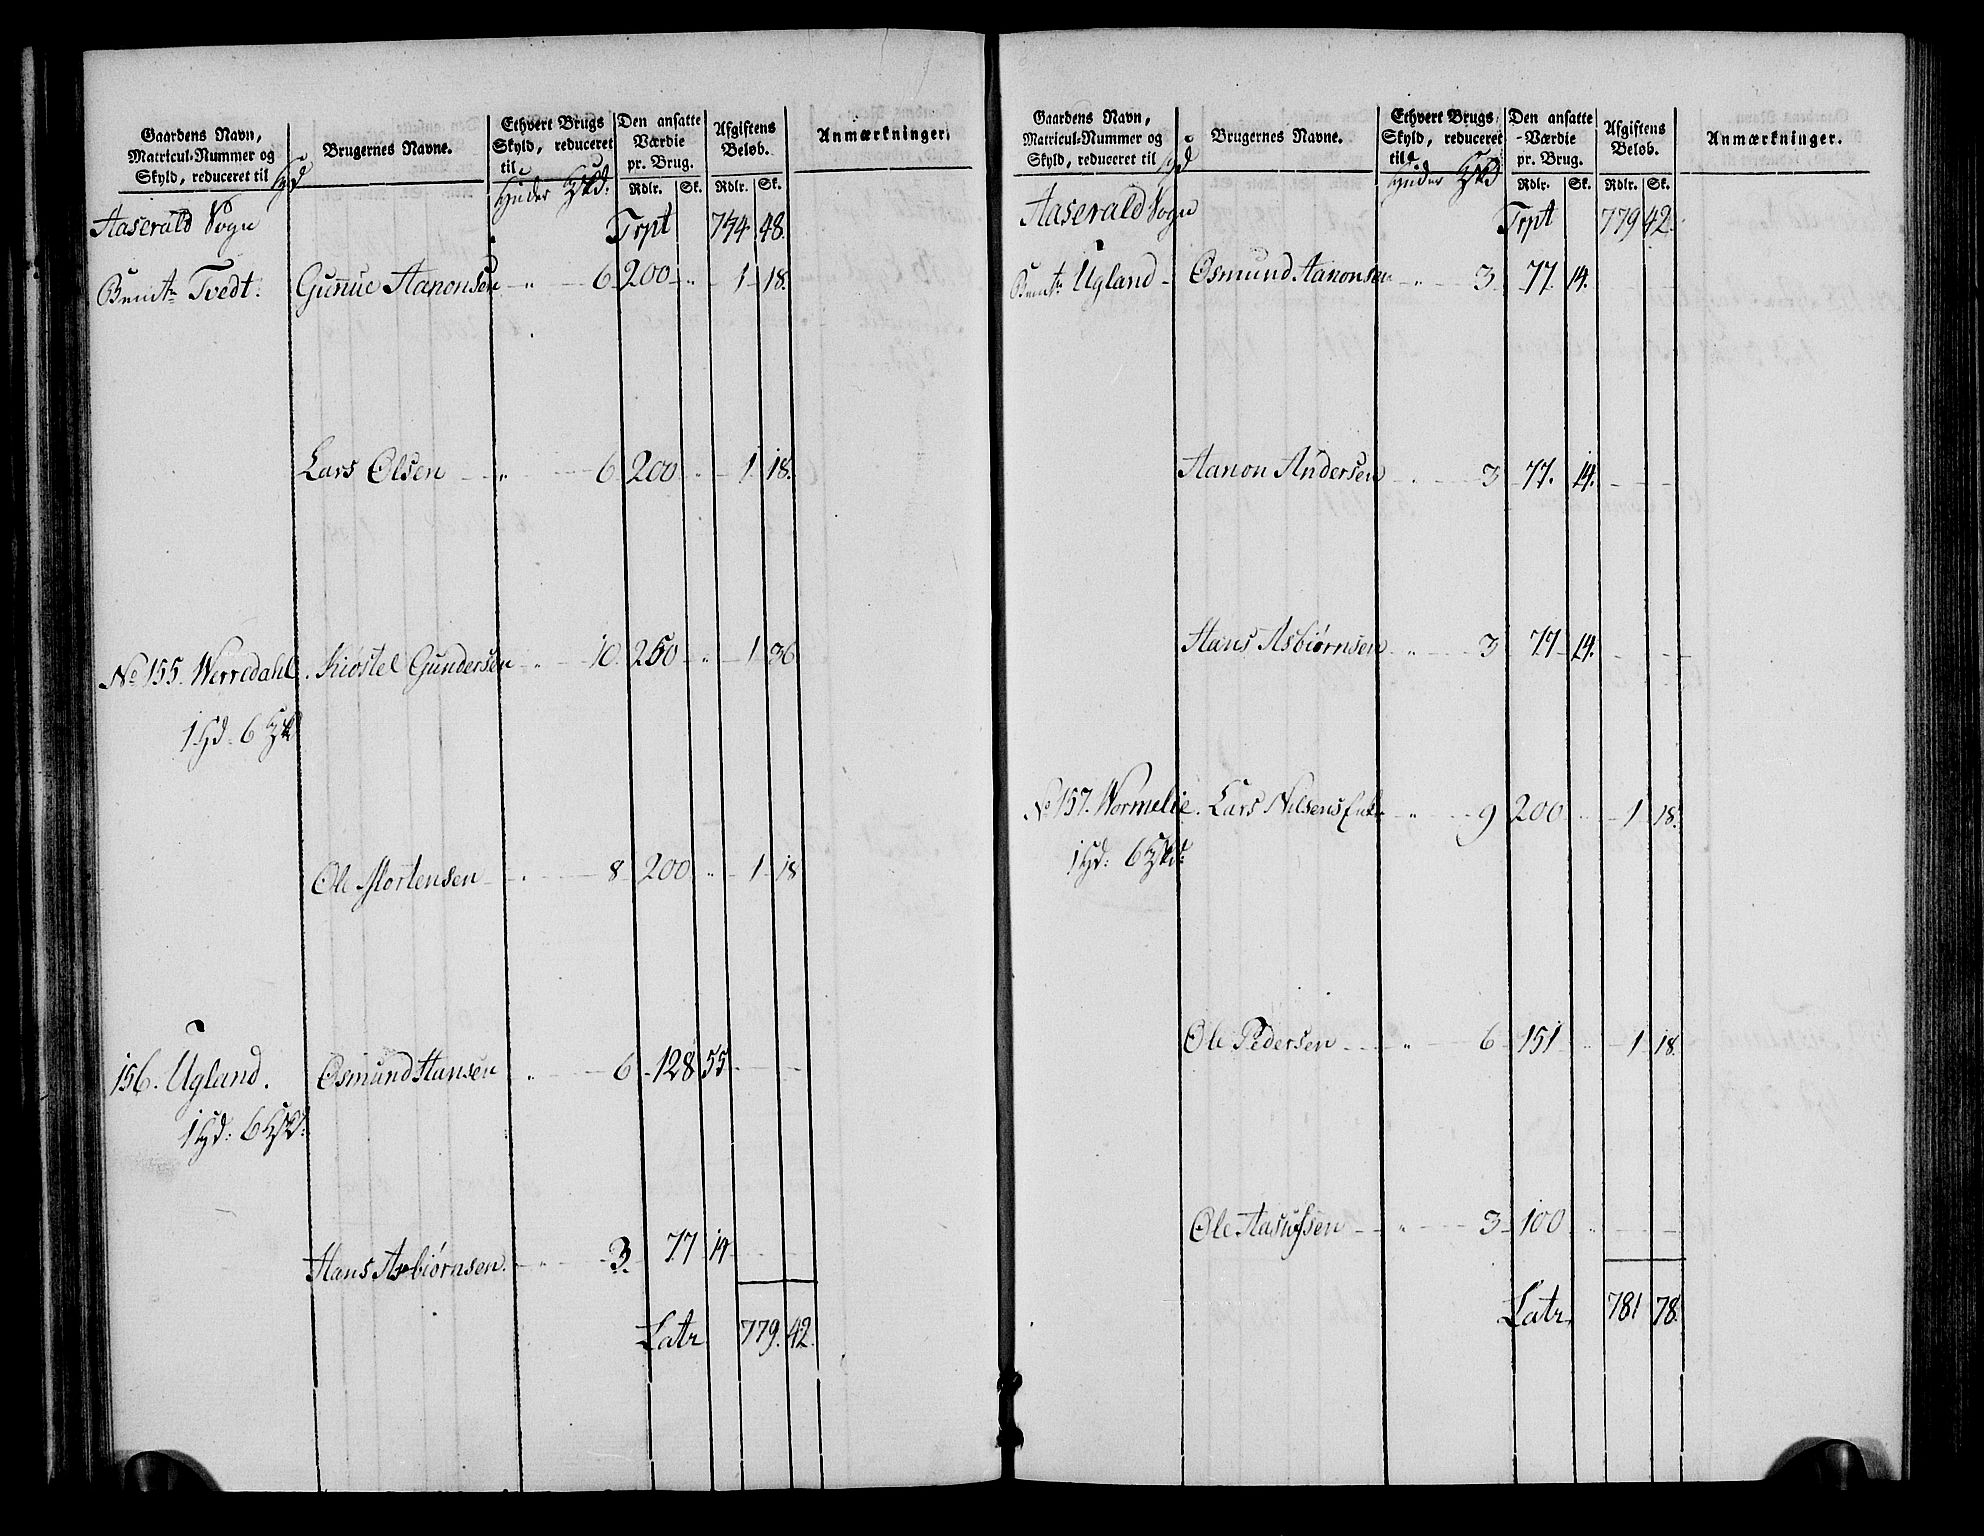 Gaardens Navn, Matricul-Nummer og Skyld, reduceret til Hd
Brugernes Navne.
Ethvert Brugs Skyld, reduceret til Huder Hskd:
Den ansatte Værdie pr. Brug.
Rdlr. Sk.
Afgiftens Beløb.
Rdlr. Sk.
Anmærkninger.
Aaserald Sogn Trpt 774 48.
Tvedt. Gunnue Aanonsen " 6 200 " 1 18.
Lars Olsen " 6 200 " 1 18.
No 155. Werredahl. Kiøstel Gundersen " 10 250 " 1 36
1 Hd. 6 Hskd
Ole Mortensen " 8 200 " 1 18
156. Ugland. Osmund Hansen " 6 128 55
1 Hd: 6 Hskd:
Hans Asbiørnsen. " 3. 77 14
Latr 779. 42.
Gaardens Navn, Matricul-Nummer og Skyld, reduceret til Hd
Brugernes Navne.
Ethvert Brugs Skyld, reduceret til Huder Hskd
Den ansatte Værdie pr. Brug.
Rdlr. Sk.
Afgiftens Beløb.
Rdlr. Sk.
Anmærkninger.
Aaserald Sogn Trpt 779 42.
Ugland Osmund Aanonsen " 3 77. 14.
Aanon Andersen " 3 77. 14.
Hans Asbiørnsen " 3 77 14.
No 157. Wormelie. Lars Nilsens Enke " 9 200 1 18.
1 Hd: 6 Hskd:
Ole Pedersen " 6 151 1 18.
Ole Aasulfsen " 3 100
Latr 781 78.